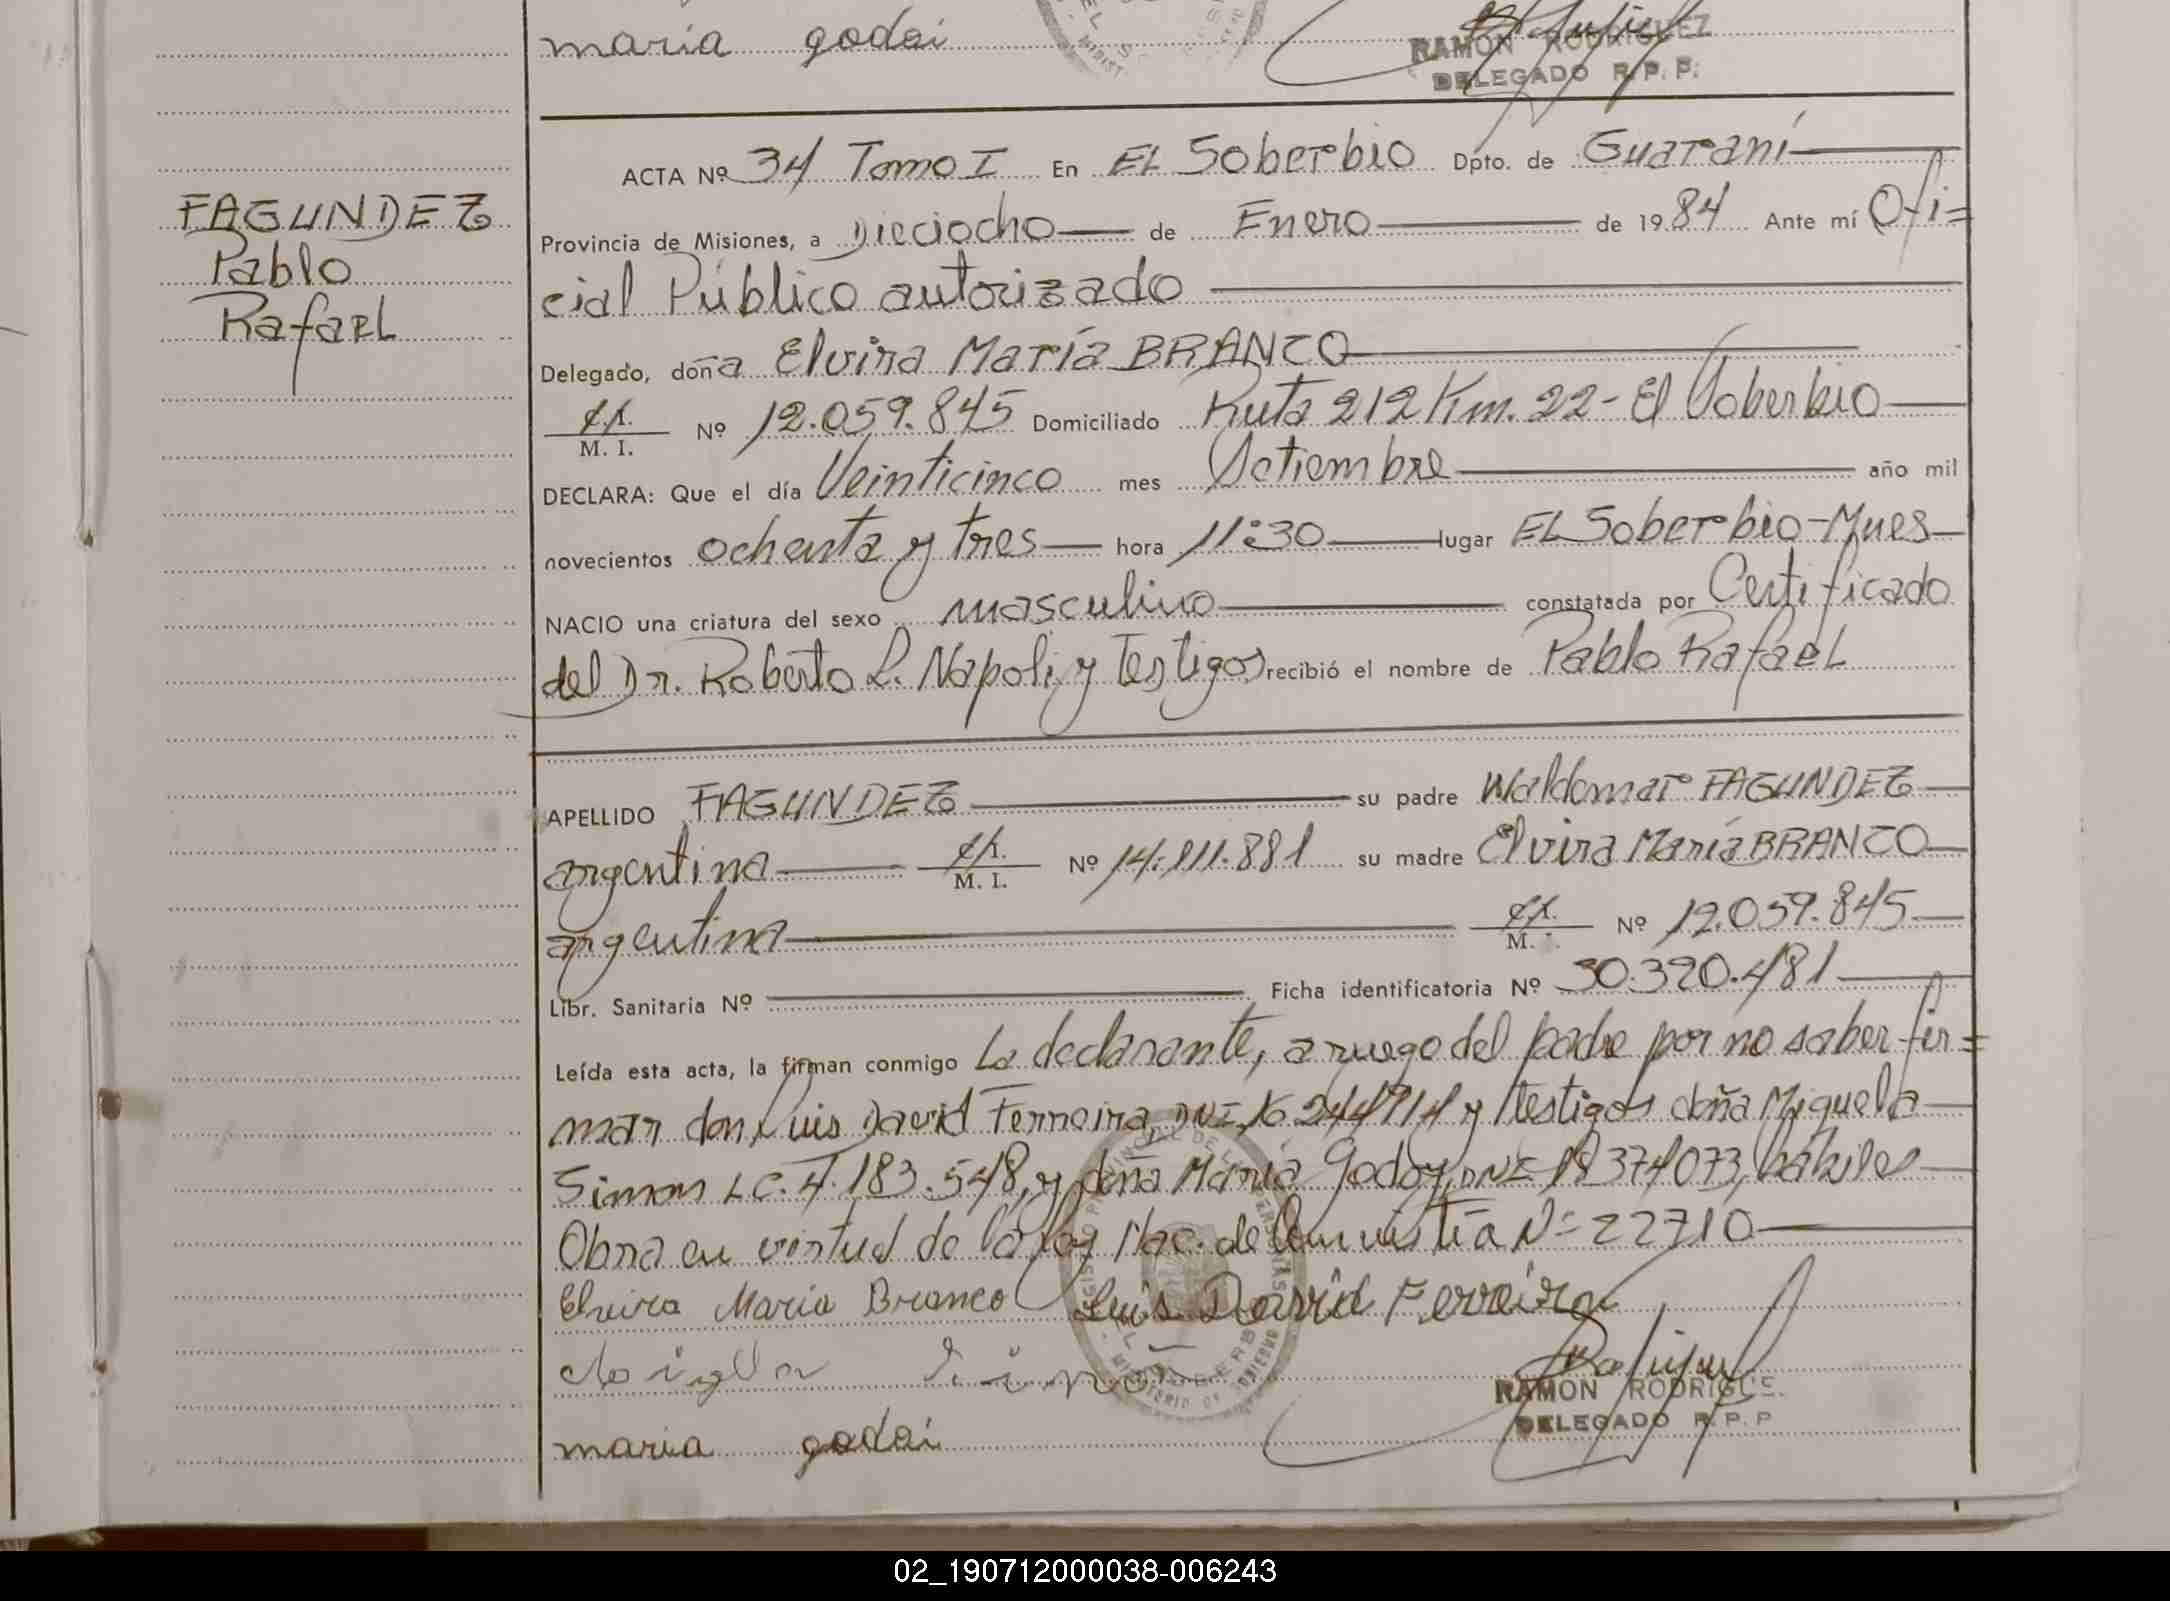 maria godoi
RAMON RODRIGUEZ
DELEGADO R. P. P.
FAGUNDEZ
Pablo
Rafael
ACTA Nº 34 Tomo I En EL Soberbio Dpto. de Guaraní
Provincia de Misiones, a Dieciocho de Enero de 1984 Ante mí Ofi=
cial Público autorizado
Delegado, doña Elvira María BRANCO
M. I. Nº 12.059.845 Domiciliado Ruta 212 Km. 22- El Soberbio
DECLARA: Que el día Veinticinco mes Setiembre año mil
novecientos ochenta y tres hora 11:30 lugar EL Soberbio-Mnes
NACIO una criatura del sexo masculino constatada por Certificado
del Dr. Roberto L. Napoli, y Testigos recibió el nombre de Pablo Rafael
APELLIDO FAGUNDEZ su padre Waldomar FAGUNDEZ
argentina M. I. Nº 14.111.881 su madre Elvira María BRANCO
argentina M. I. Nº 12.059.845
Libr. Sanitaria Nº Ficha identificatoria Nº 30.320.481
Leída esta acta, la firman conmigo La declarante, a ruego del padre por no saber fir=
mar don Luis David Ferreira, DNI. 16244914 y testigos doña Miguela
Simon LC. 4.183.548, y doña María Godoy, DNI 18374073, hábiles
Obra en virtud de la Ley Nac. de Amnistía Nº 22710
Elvira Maria Branco Luis David Ferreira
RAMON RODRIGUE
DELEGADO R. P. P
maria godoi
02_190712000038-006243